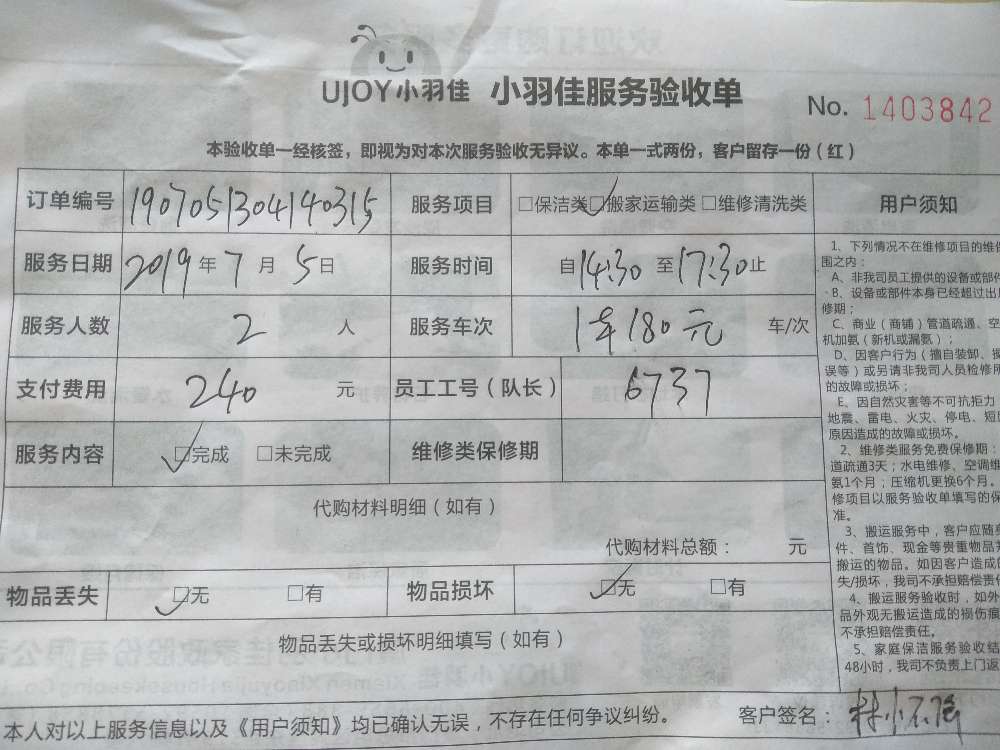 UJOY小羽佳 小羽佳服务验收单
No. 1403842
本验收单一经核签，即视为对本次服务验收无异议。本单一式两份，客户留存一份（红）
订单编号 1907051304140315 服务项目 □保洁类 □搬家运输类 □维修清洗类
服务日期 2019 年 7 月 5 日 服务时间 自 14:30 至 17:30 止
服务人数 2 人 服务车次 1车180元 车/次
支付费用 240 元 员工工号（队长） 6737
服务内容 □完成 □未完成 维修类保修期
代购材料明细（如有）
代购材料总额： 元
物品丢失 □无 □有 物品损坏 □无 □有
物品丢失或损坏明细填写（如有）
本人对以上服务信息以及《用户须知》均已确认无误，不存在任何争议纠纷。 客户签名：
用户须知
1、下列情况不在维修项目的维
围之内：
A、非我司员工提供的设备或部件
B、设备或部件本身已经超过出
修期；
C、商业（商铺）管道疏通、空
机加氨（新机或漏氨）；
D、因客户行为（擅自装卸、
误等）或另请非我司人员检修所
的故障或损坏；
E、因自然灾害等不可抗拒力
地震、雷电、火灾、停电、短
原因造成的故障或损坏。
2、维修类服务免费保修期：
道疏通3天；水电维修、空调维
氨1个月；压缩机更换6个月。
修项目以服务验收单填写的保
准。
3、搬运服务中，客户应随身
件、首饰、现金等贵重物品
搬运的物品。如因客户造成的
失/损坏，我司不承担赔偿责任
4、搬运服务验收时，如外
品外观无搬运造成的损伤痕
不承担赔偿责任。
5、家庭保洁服务验收结
48小时，我司不负责上门返